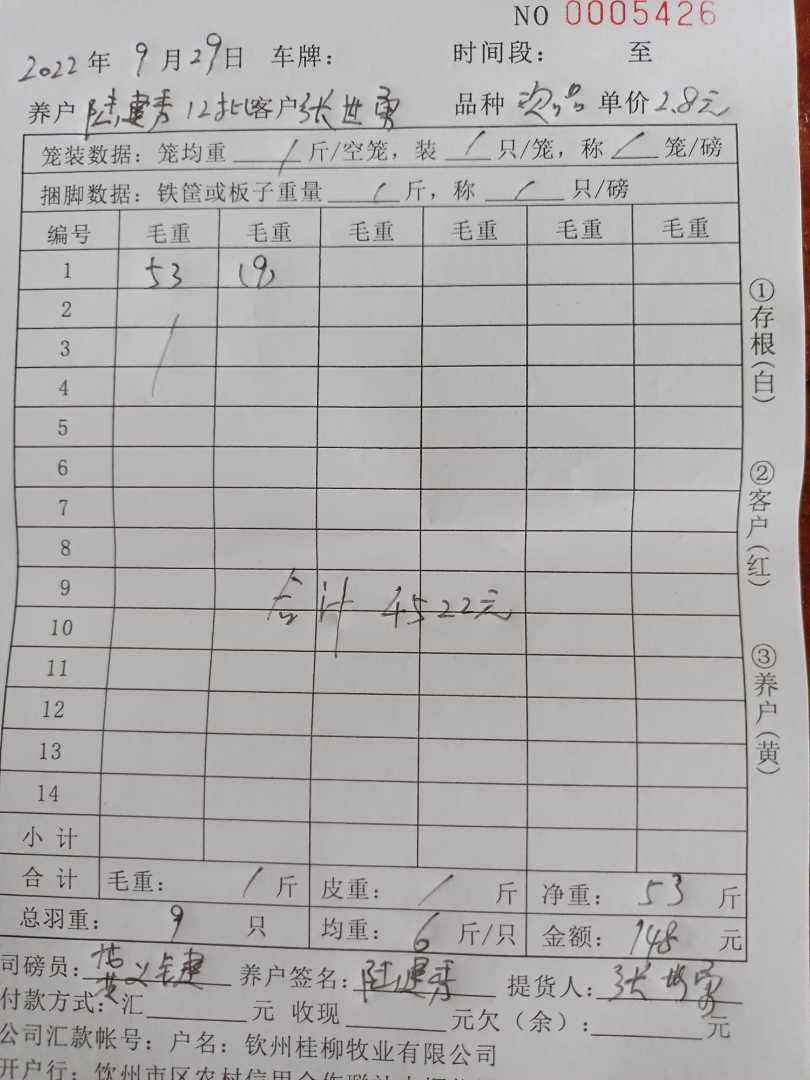 NO 0005426
2022年 9月29日 车牌： 时间段： 至
养户 陆建秀12批 客户 张世勇 品种 次品 单价 2.8元
笼装数据：笼均重 / 斤/空笼，装 / 只/笼，称 / 笼/磅
捆脚数据：铁筐或板子重量 / 斤，称 / 只/磅
编号 毛重 毛重 毛重 毛重 毛重 毛重
1 53 (9)
2
3
4
5
6
7
8
9
合计 4522元
10
11
12
13
14
小计
合计 毛重： / 斤 皮重： / 斤 净重： 53 斤
总羽重： 9 只 均重： 6 斤/只 金额： 148 元
司磅员： 养户签名：陆建秀 提货人：张世勇
付款方式：汇 元 收现 元欠（余）： 元
公司汇款帐号：户名：钦州桂柳牧业有限公司
开户行：钦州市区农村信用合作联社
①存根（白）
②客户（红）
③养户（黄）